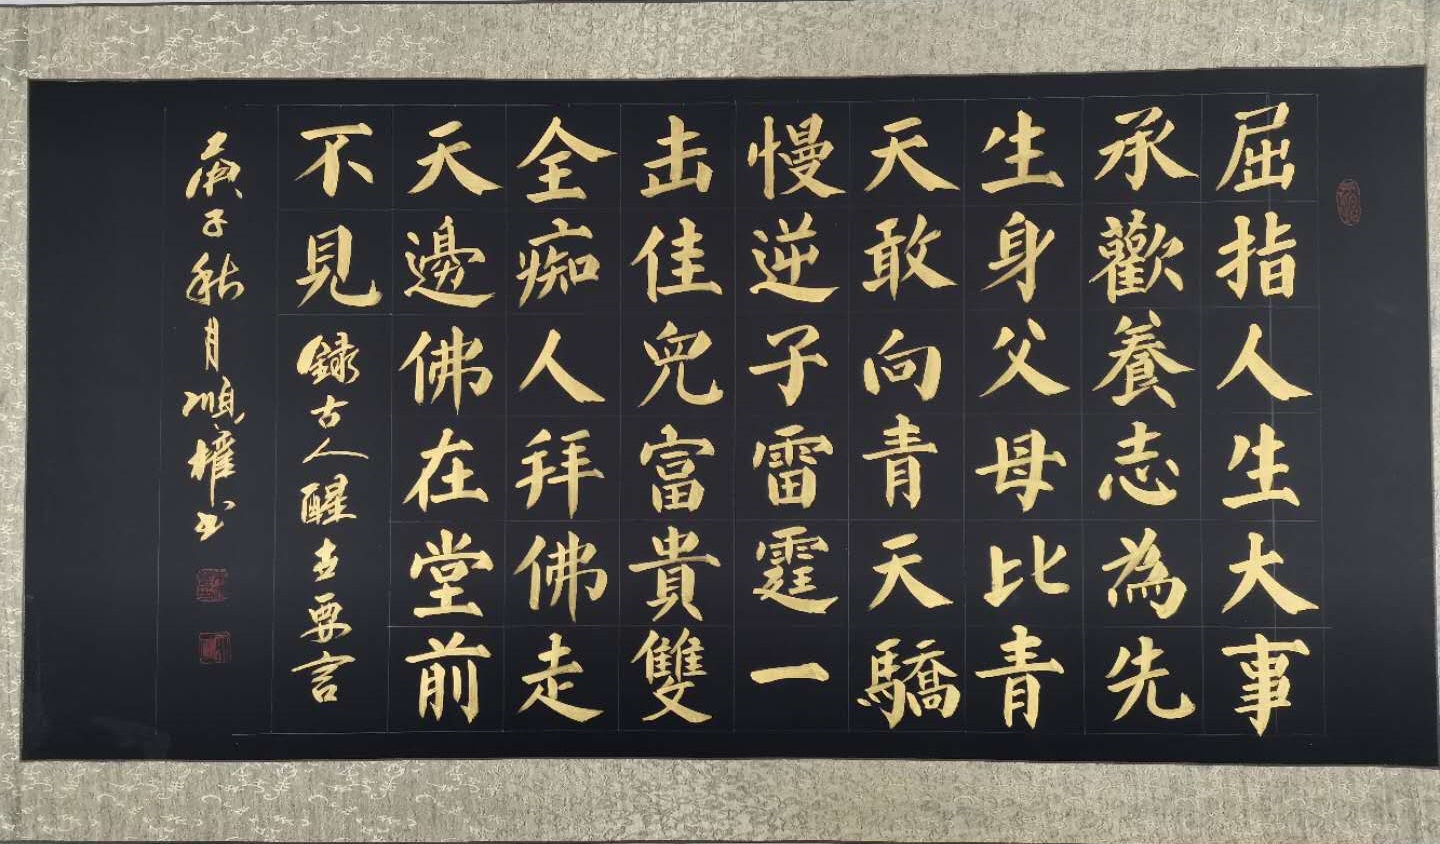 屈指人生大事
承歡養志為先
生身父母比青
天敢向青天驕
慢逆子雷霆一
击佳兒富貴雙
全痴人拜佛走
天邊佛在堂前
不見 録古人醒世要言
庚子秋月順權书